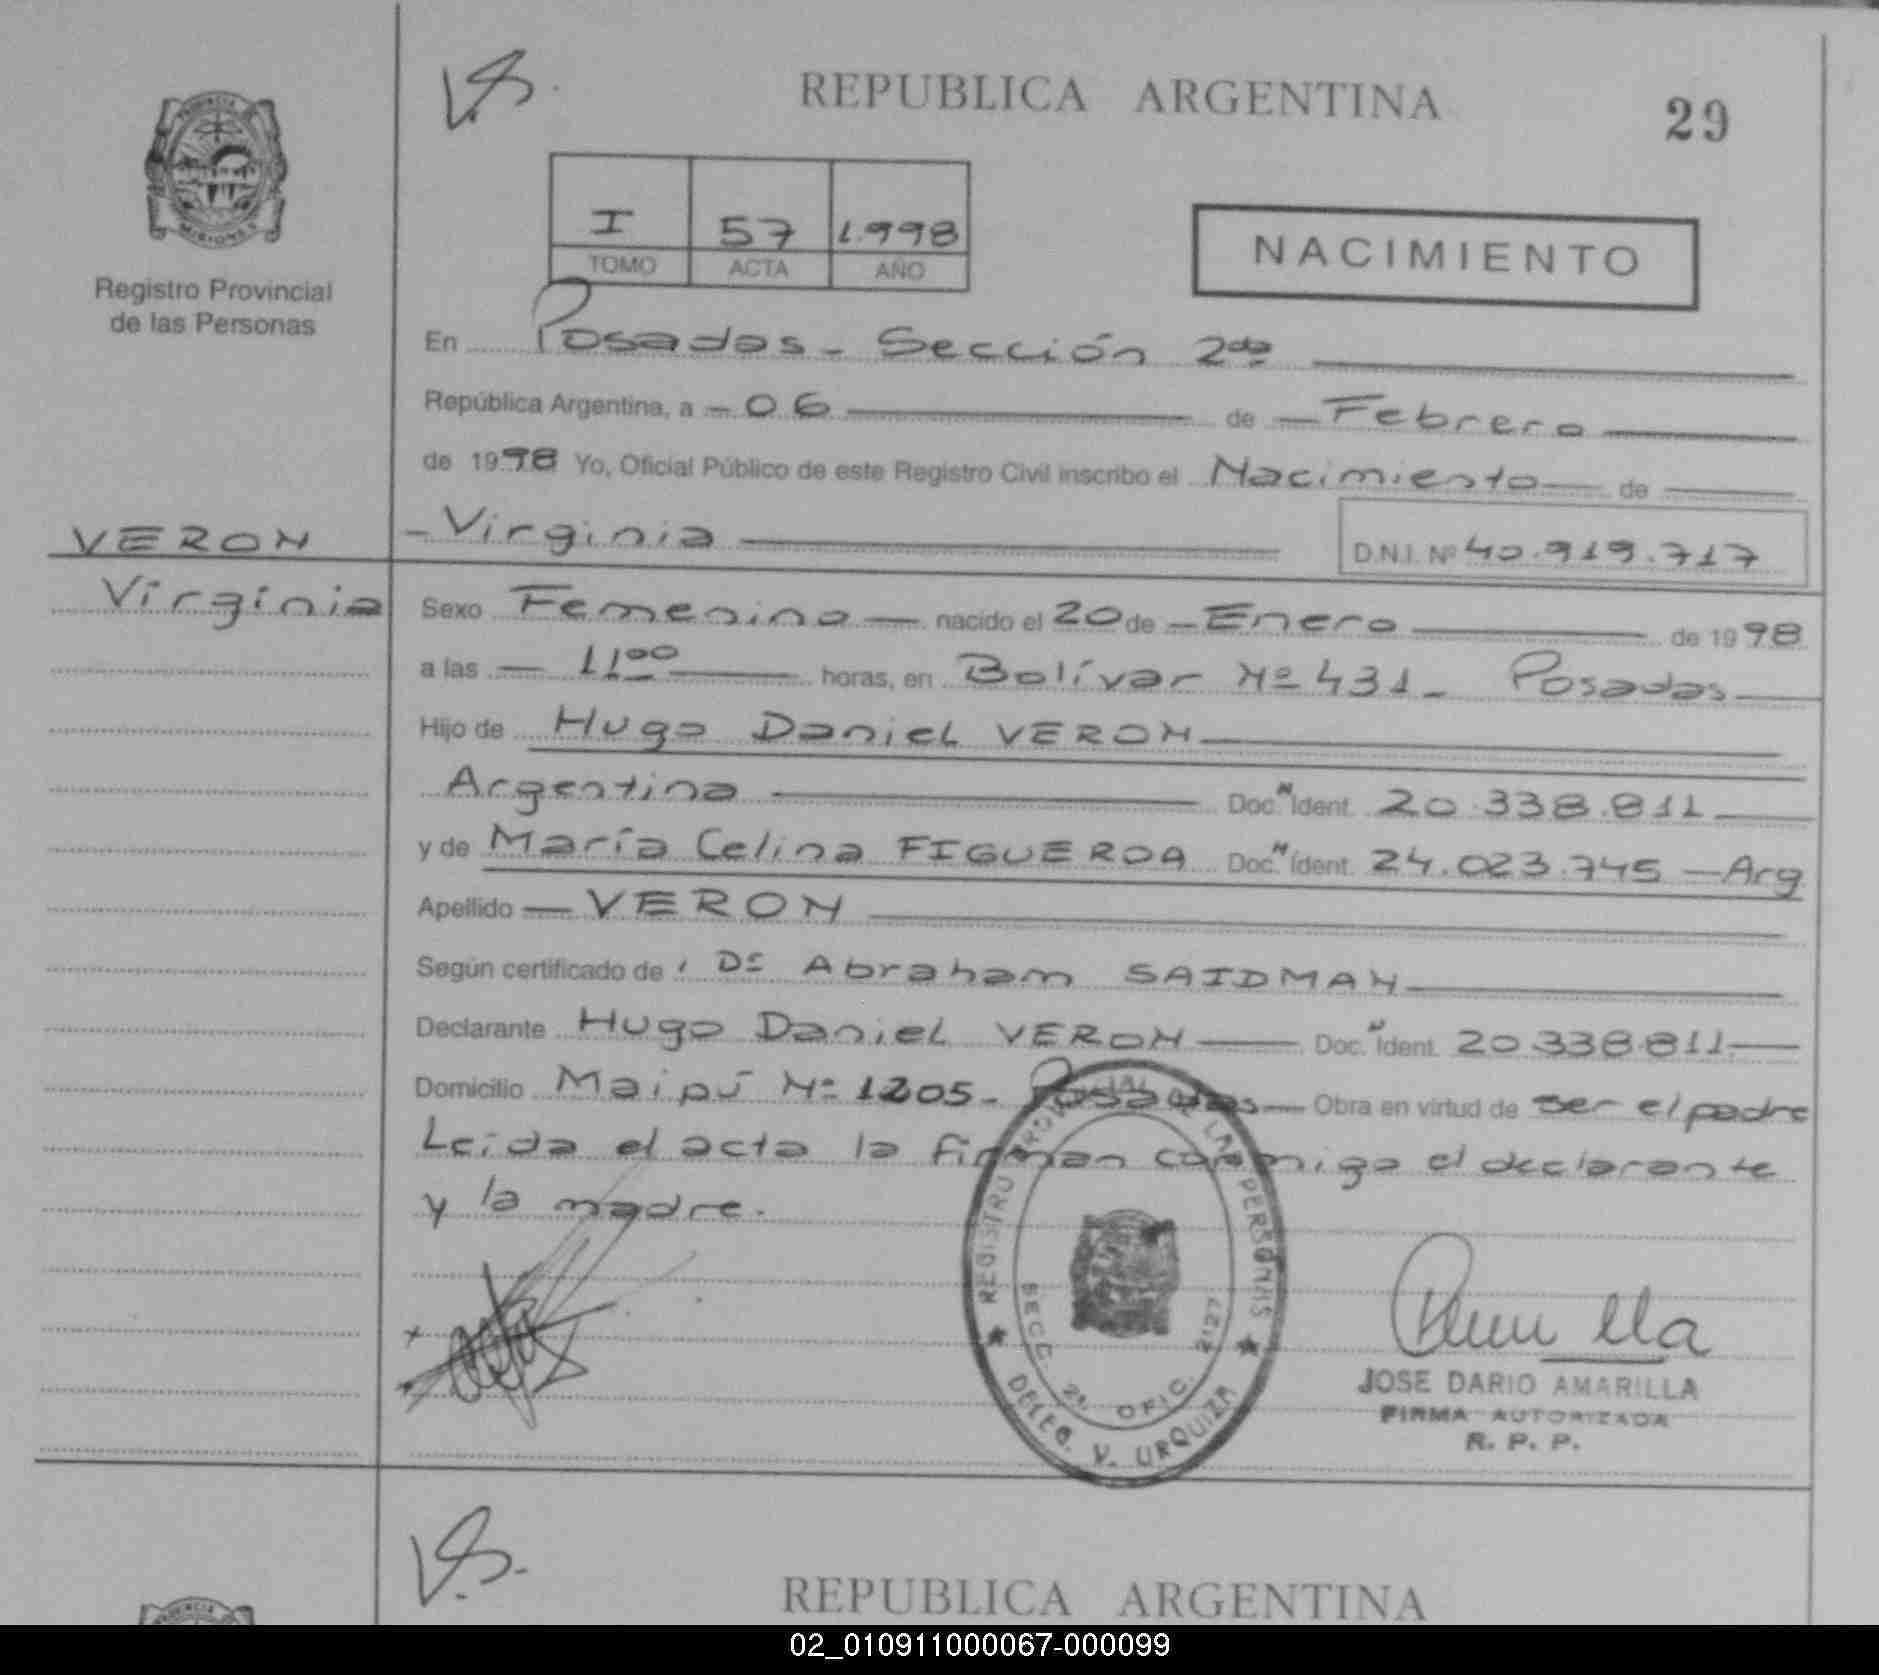 REPUBLICA ARGENTINA
29
PROVINCIA
MISIONES
Registro Provincial
de las Personas
I 57 1.998
TOMO ACTA AÑO
NACIMIENTO
En Posadas - Sección 2da
República Argentina, a - 06 de - Febrero
de 1998 Yo, Oficial Público de este Registro Civil inscribo el Nacimiento de
VERON
- Virginia D.N.I. Nº 40.919.717
Virginia
Sexo Femenino nacido el 20 de - Enero de 1998
a las 1100 horas, en Bolívar Nº 431 - Posadas
Hijo de Hugo Daniel VERON
Argentina Doc. N Ident. 20.338.811
y de María Celina FIGUEROA Doc. N Ident. 24.023.745 - Arg
Apellido - VERON
Según certificado de Dr Abraham SAIDMAN
Declarante Hugo Daniel VERON Doc. N Ident. 20.338.811
Domicilio Maipú Nº 1205 - Posadas Obra en virtud de ser el padre
Leída el acta la firman conmigo el declarante
y la madre.
REGISTRO PROVINCIAL DE LAS PERSONAS
SECC. 2ª OFIC. 2127
DELEG. V. URQUIZA
JOSE DARIO AMARILLA
FIRMA AUTORIZADA
R. P. P.
REPUBLICA ARGENTINA
02_010911000067-000099